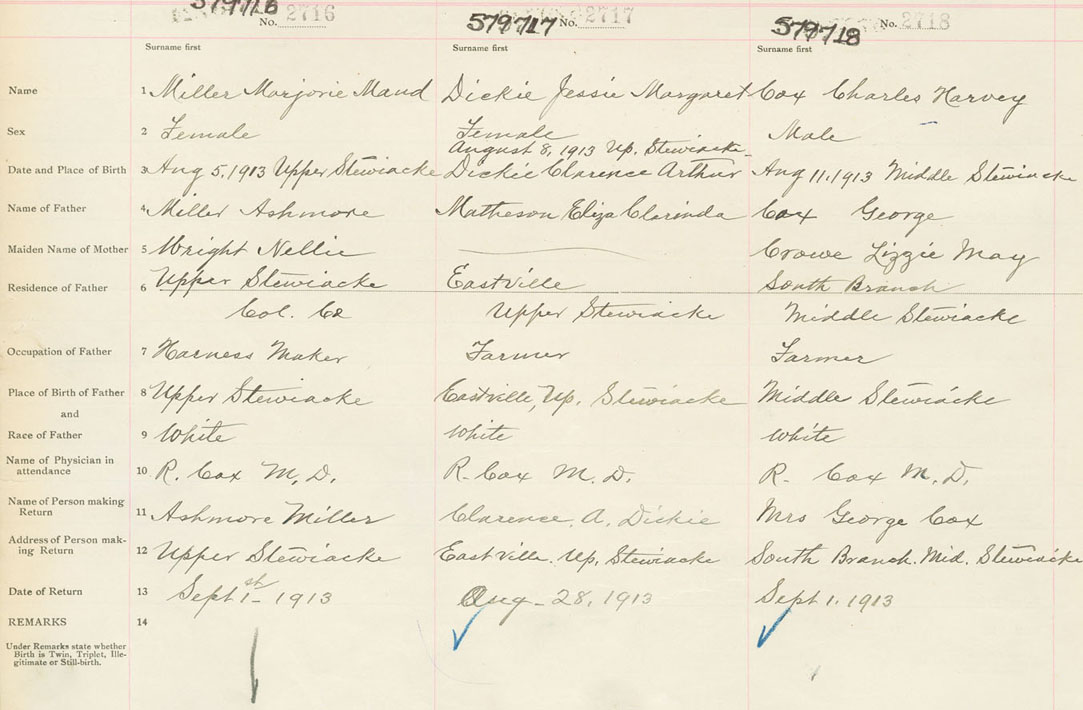 579716 579717 579718
No. 2716 No. 2717 No. 2718
Surname first Surname first Surname first
Name 1 Miller Marjorie Maud Dickie Jessie Margaret Cox Charles Harvey
Sex 2 Female Female Male
August 8, 1913 Up. Stewiacke
Date and Place of Birth 3 Aug 5, 1913 Upper Stewiacke Dickie Clarence Arthur Aug 11, 1913 Middle Stewiacke
Name of Father 4 Miller Ashmore Matheson Eliza Clarinda Cox George
Maiden Name of Mother 5 Wright Nellie Crowe Lizzie May
Residence of Father 6 Upper Stewiacke Eastville South Branch
Col. Co Upper Stewiacke Middle Stewiacke
Occupation of Father 7 Harness Maker Farmer Farmer
Place of Birth of Father 8 Upper Stewiacke Eastville, Up. Stewiacke Middle Stewiacke
and
Race of Father 9 White White White
Name of Physician in
attendance 10 R. Cox M.D. R. Cox M.D. R. Cox M.D.
Name of Person making
Return 11 Ashmore Miller Clarence. A. Dickie Mrs George Cox
Address of Person mak-
ing Return 12 Upper Stewiacke Eastville. Up. Stewiacke South Branch. Mid. Stewiacke
Date of Return 13 Sept 1st 1913 Aug - 28, 1913 Sept 1, 1913
REMARKS 14
Under Remarks state whether
Birth is Twin, Triplet, Ille-
gitimate or Still-birth.